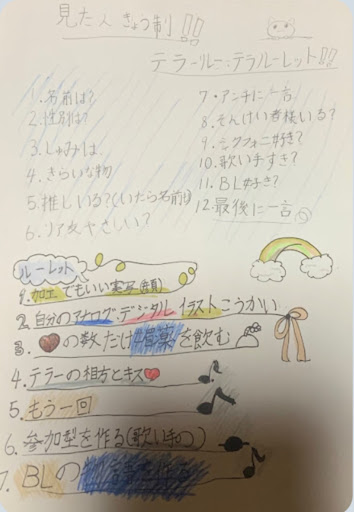 見た人きょう制!!
テラールー:テラルーレット!!
1.名前は?
2.性別は?
3.しゅみは
4.きらいな物
5.推しいる?(いたら名前も)
6.リア友やさしい?
7.アンチに一言
8.そんけい者様いる?
9.シクフォニ好き?
10.歌い手すき?
11.BL好き?
12.最後に一言
ルーレット
1.加工でもいい実写(顔)
2.自分のアナログ,デジタルイラストこうかい
3.❤の数だけ媚薬を飲む
4.テラーの相方とキス❤
5.もう一回
6.参加型を作る(歌い手の)
7.BLの